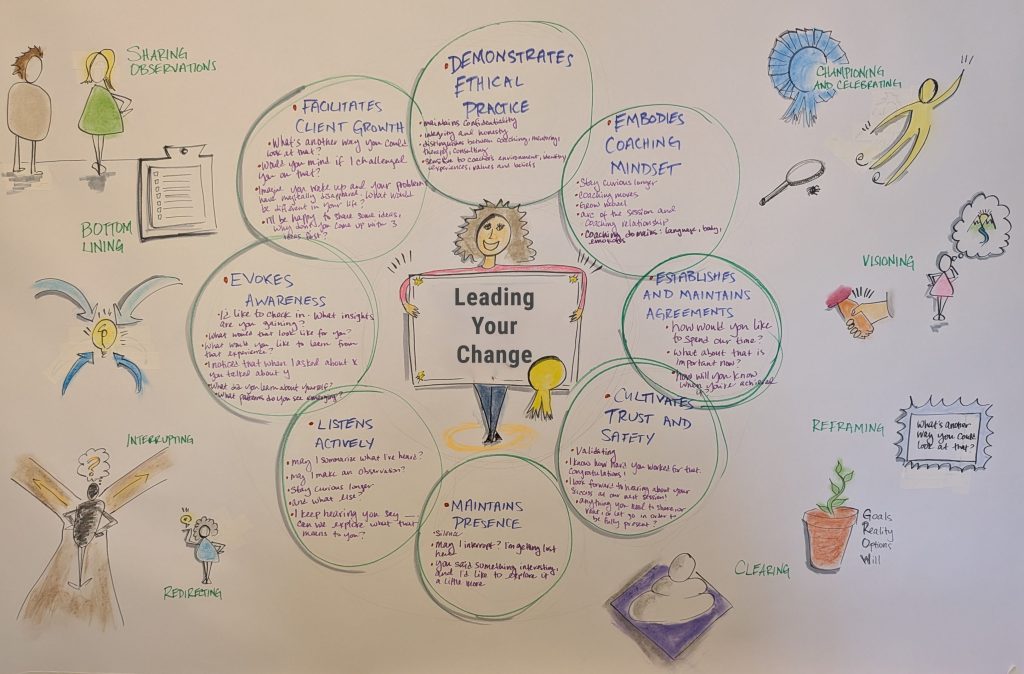 SHARING
OBSERVATIONS
BOTTOM
LINING
INTERRUPTING
REDIRECTING
Leading
Your
Change
• DEMONSTRATES
ETHICAL
PRACTICE
• maintains confidentiality
• integrity and honesty
• distinguishes between coaching, mentoring,
therapy, consulting
experiences, values and beliefs
• EMBODIES
COACHING
MINDSET
• Stay curious longer
• Coaching moves
• Grow model
• arc of the session and
coaching relationship
• Coaching domains: language, body,
emotions
• ESTABLISHES
AND MAINTAINS
AGREEMENTS
• how would you like
to spend our time?
• What about that is
important now?
• How will you know
when you're achieved
it?
• CULTIVATES
TRUST AND
SAFETY
• Validating
• I know how hard you worked for that.
Congratulations!
• I look forward to hearing about your
success at our next session!
• anything you need to share or
hear, or let go in order to
be fully present?
• MAINTAINS
PRESENCE
• Silence
• may I interrupt? I'm getting lost
here
• you said something interesting,
and I'd like to explore it
a little more
• LISTENS
ACTIVELY
• may I summarize what I've heard?
• may I make an observation?
• Stay curious longer
• and what else?
• I keep hearing you say —
can we explore what that
means to you?
• EVOKES
AWARENESS
• I'd like to check in. What insights
are you gaining?
• What would that look like for you?
• What would you like to learn from
that experience?
• I noticed that when I asked about x
you talked about y
• What did you learn about yourself?
• What patterns do you see emerging?
• FACILITATES
CLIENT GROWTH
• What's another way you could
look at that?
• Would you mind if I challenged
you on that?
• Imagine you wake up and your problem
have magically disappeared. What would
be different in your life?
• I'll be happy to share some ideas,
Why don't you come up with 3
ideas first?
CHAMPIONING
AND CELEBRATING
VISIONING
REFRAMING
What's another
way you could
look at that?
Goals
Reality
Options
Will
CLEARING